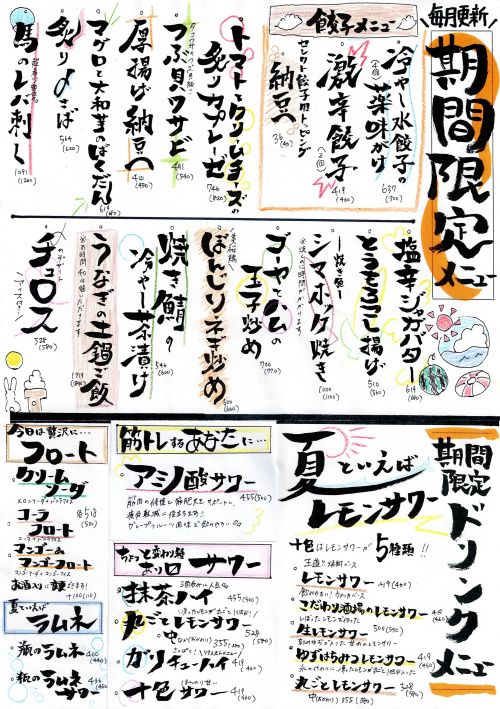 毎月更新
期間限定メニュー
餃子メニュー
冷やし水餃子の薬味がけ
637
(700)
激辛餃子
419
(460)
セレクト餃子用トッピング
納豆
36
(40)
トマトとクリームチーズの
炙りカプレーゼ
746
(820)
つぶ貝ワサビ
491
(540)
厚揚げ納豆
410
(450)
マグロと大和芋のばくだん
619
炙り〆さば
564
(620)
馬のレバ刺し
1091
(1200)
塩辛ジャガバター
619
(680)
とうもろこし揚げ
510
(560)
焼き魚
シマホッケ焼き
1000
(1100)
ゴーヤとハムの
玉子炒め
700
(770)
ぼんじりネギ炒め
600
(660)
焼き鯖の
冷やし茶漬け
546
(600)
うなぎの土鍋ご飯
チュロス
528
(580)
期間限定
ドリンクメニュー
夏といえば
レモンサワー
十色はレモンサワーが5種類!!
レモンサワー
419(460)
こだわり酒場のレモンサワー
生レモンサワー
500(550)
ゆずはちみつレモンサワー
419
(460)
丸ごとレモンサワー
528
(580)
筋トレするあなたに…
アミノ酸サワー
455(500)
ちょっと変わり種
オリロサワー
抹茶ハイ
455(500)
丸ごとレモンサワー
528
(580)
中(おかわり)
355
ガリチューハイ
419
(460)
十色サワー
419
(460)
今日は贅沢に…
フロート
クリームソーダ
コーラフロート
各518
マンゴー&マンゴーフロート
お酒入りに変更
+100(110)
夏といえば
ラムネ
瓶のラムネ
400
(440)
瓶のラムネサワー